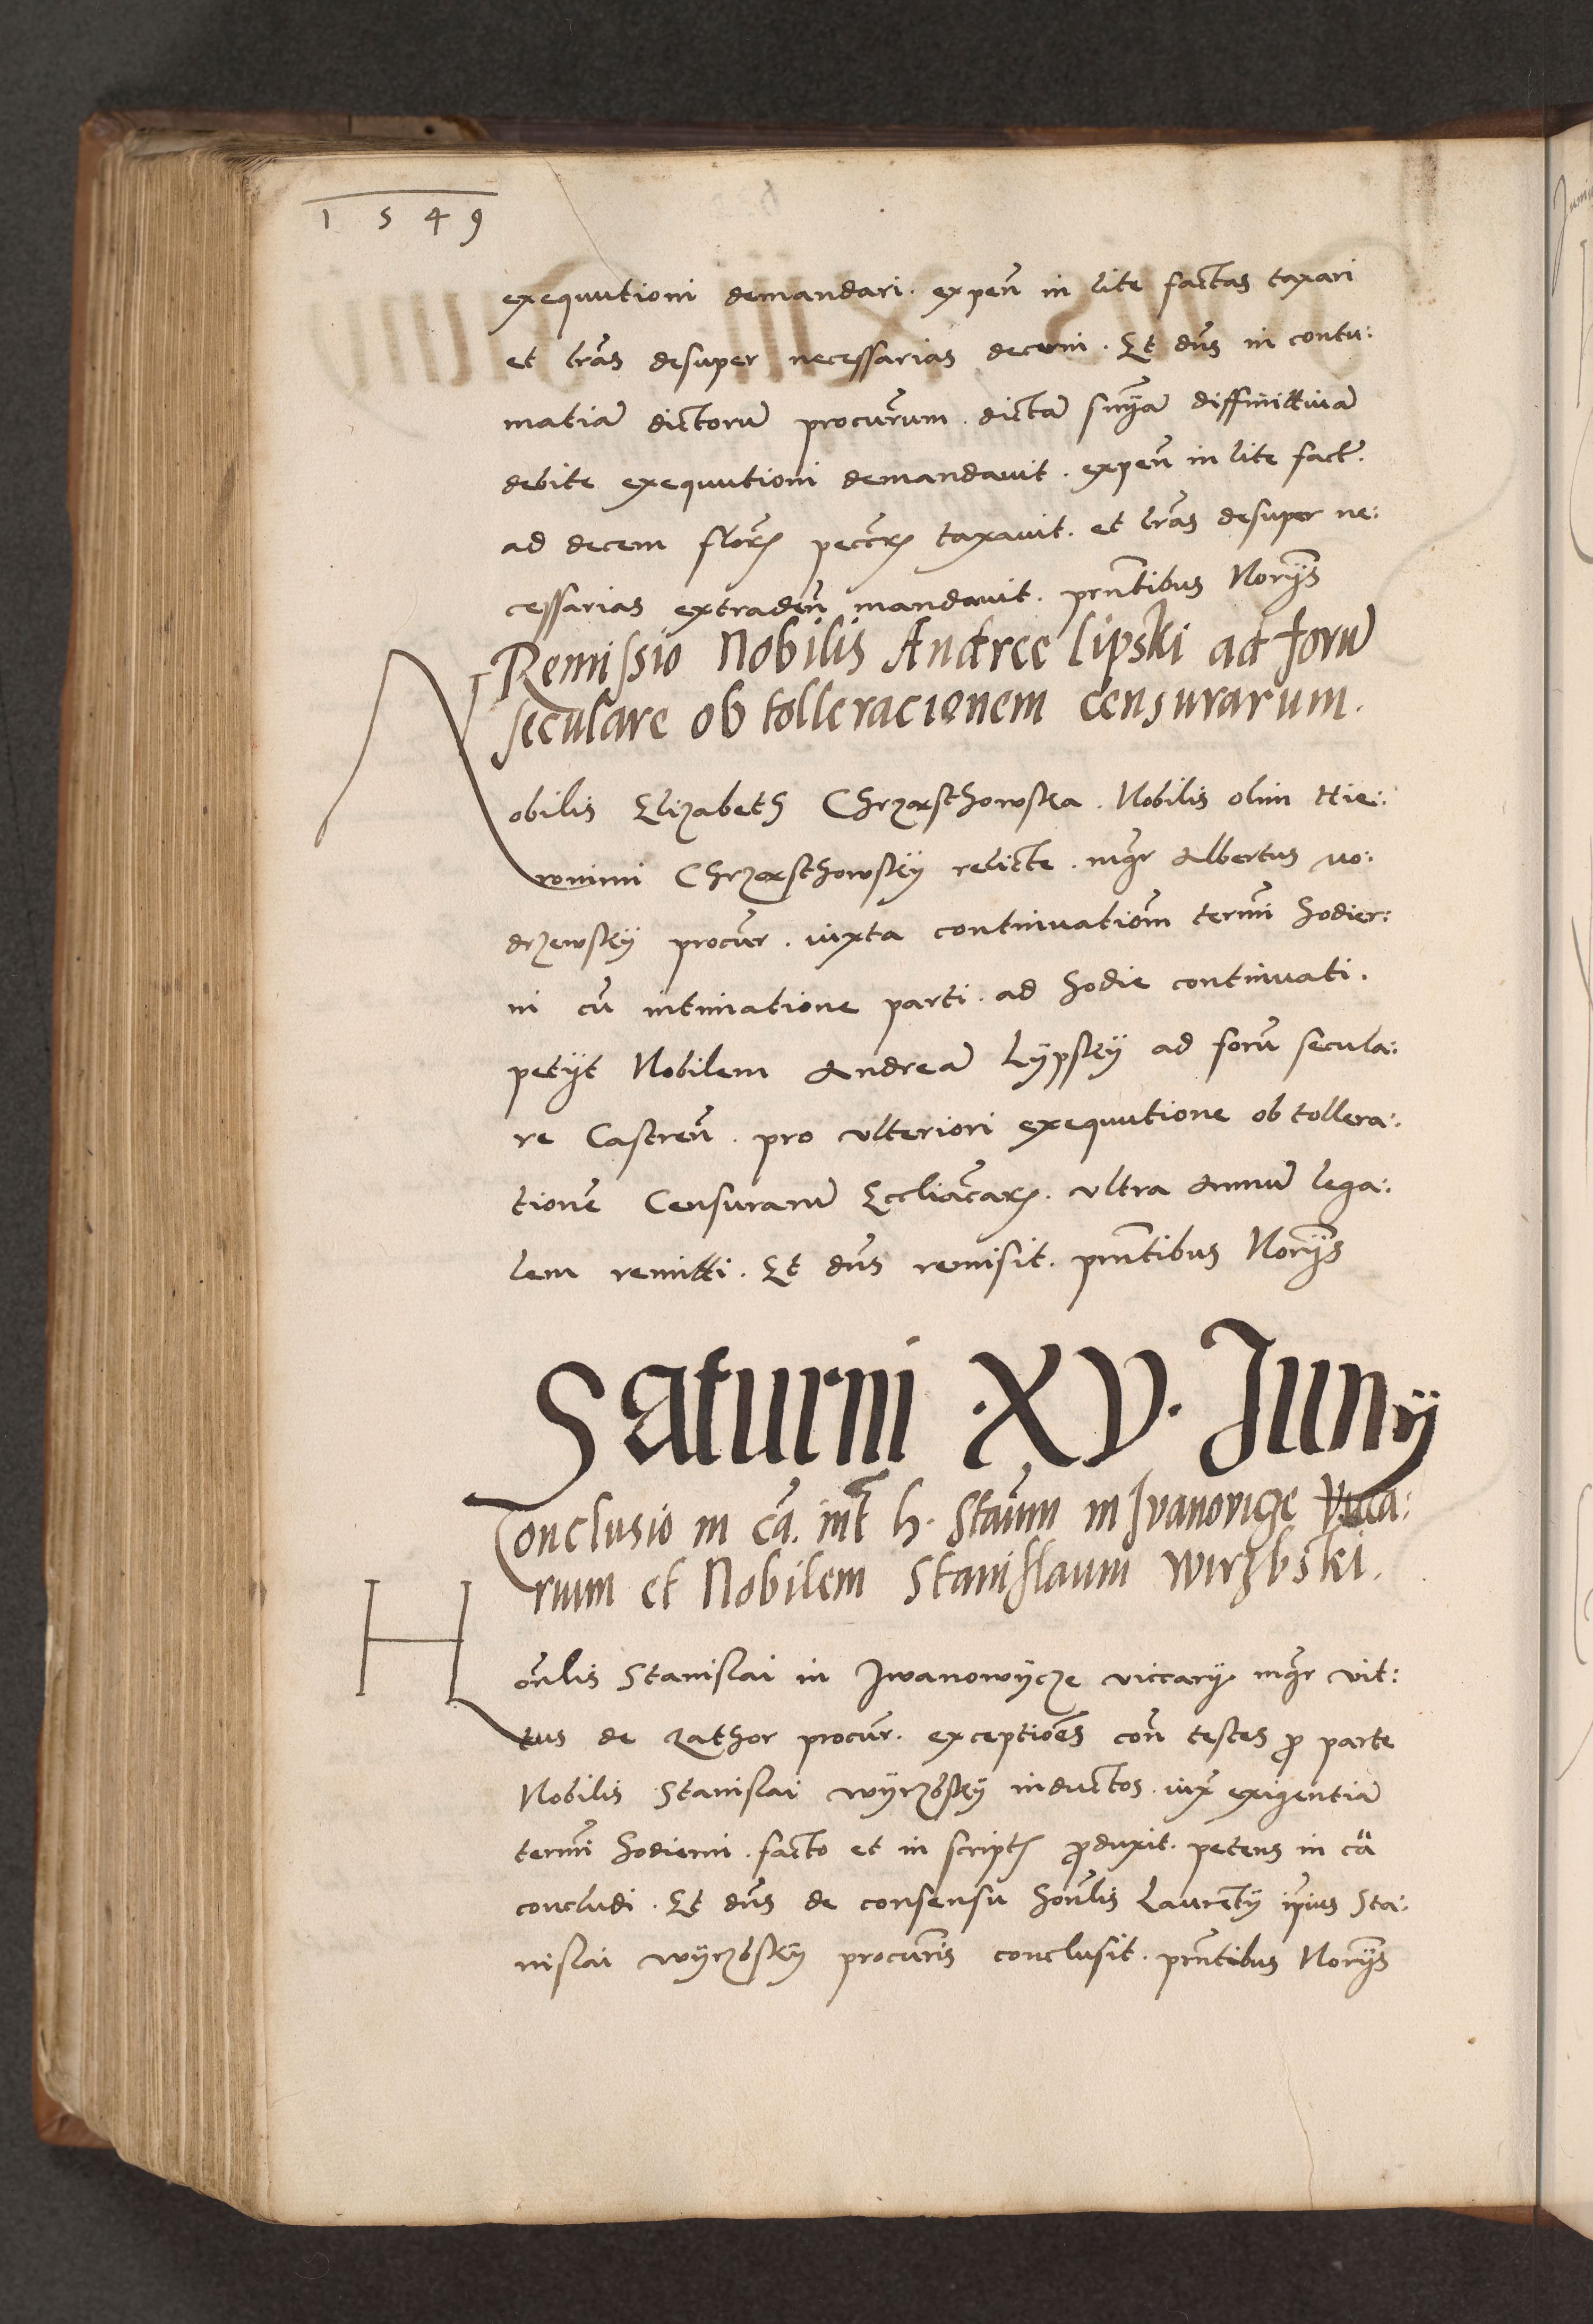 1549
exequutioni demandari. expeñ in lite factas taxari
et lras desuper necessarias decerni. Et dns in contu:
matiã dictorũ procurum. dictã snyã diffinittiuã
debite exequutioni demandauit. expeñ in lite fact.
ad decem flor peccr taxauit. et lras desuper ne:
cessarias extradeñ mandauit. prntibus Norijs
Remissio Nobilis Andree Lipski ad forũ
seculare ob tolleracionem censurarum.
Nobilis Elizabeth Chrzasthowska. Nobilis olim Hie:
ronimi Chrzasthowsky relicte. mgr Albertus mo:
drzewsky procur. iuxta continuatiom termi hodier:
ni cũ intimatione parti. ad hodie continuati.
petyt Nobilem Andreã Lypsky ad forũ secula:
re Castreñ. pro vlteriori exequutione ob tollera:
tionẽ Censurarũ Eccliãcar. vltra Annũ lega:
lem remitti. Et dns remisit. prntibus Norijs
Saturni .XV. Junÿ
Conclusio in cã. int h. Staũm in Ivanovicze Vicca:
rium et Nobilem Stanislaum Wirzbski.
Honlis Stanislai in Jwanowÿcze viccarij. mgr vit:
tus de Zathor procur. exceptioẽs coñ testes p parte
Nobilis Stanislai wÿrzbsky inductos. iux exigentiã
termi hodierni. facto et in script produxit. petens in cã
concludi. Et dns de consensu honlis Laurẽty ipius Sta:
nislai wÿrzbsky procuris conclusit. prntibus Norijs